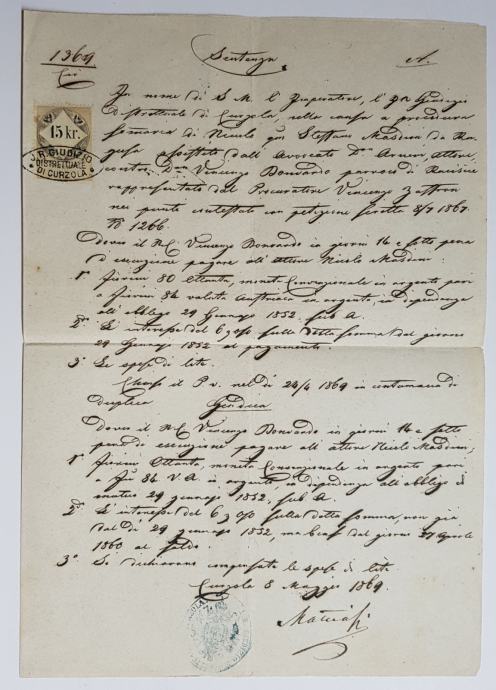 1369
Civ
Sentenza
A.
15 kr.
I.R. GIUDIZIO
DISTRETTUALE
DI CURZOLA
In nome di S. M. l'Imperatore, l'
Distrettuale di Curzola, nella causa a procedura
sommaria di Nicolò Steffano da
assistito dall' Avvocato attore,
contro Vincenzo parroco di
rappresentato dal Procuratore Vincenzo
nei punti contestati con petizione 8/7 1867
N 1266.
Dover il Vincenzo in giorni 14 e sotto pena
di esecuzione pagare all' attore Nicolò
1° fiorini 80 ottanta, moneta Convenzionale in argento pari
a fiorini 84 valuta Austriaca in argento, in dipendenza
all' obbligo 29 Gennajo 1852, sub A.
2° L' interesse del 6 % sulla detta somma dal giorno
29 Gennajo 1852 al pagamento.
3° Le spese di lite.
il P. v. nel dì 24/4 1869 in contumacia di
duplica Giudica
Dover il Vincenzo in giorni 14 e sotto
pena di esecuzione pagare all' attore Nicolò
1° fiorini ottanta, moneta Convenzionale in argento pari
a 84 V. A. in argento in dipendenza all' obbligo di
29 gennajo 1852, sub A.
2° L' interesse del 6 % sulla detta somma, non già
dal dì 29 gennajo 1852, ma dal giorno 27 Aprile
1860 al saldo.
3° Si dichiarano compensate le spese di lite.
Curzola 8 Maggio 1869.